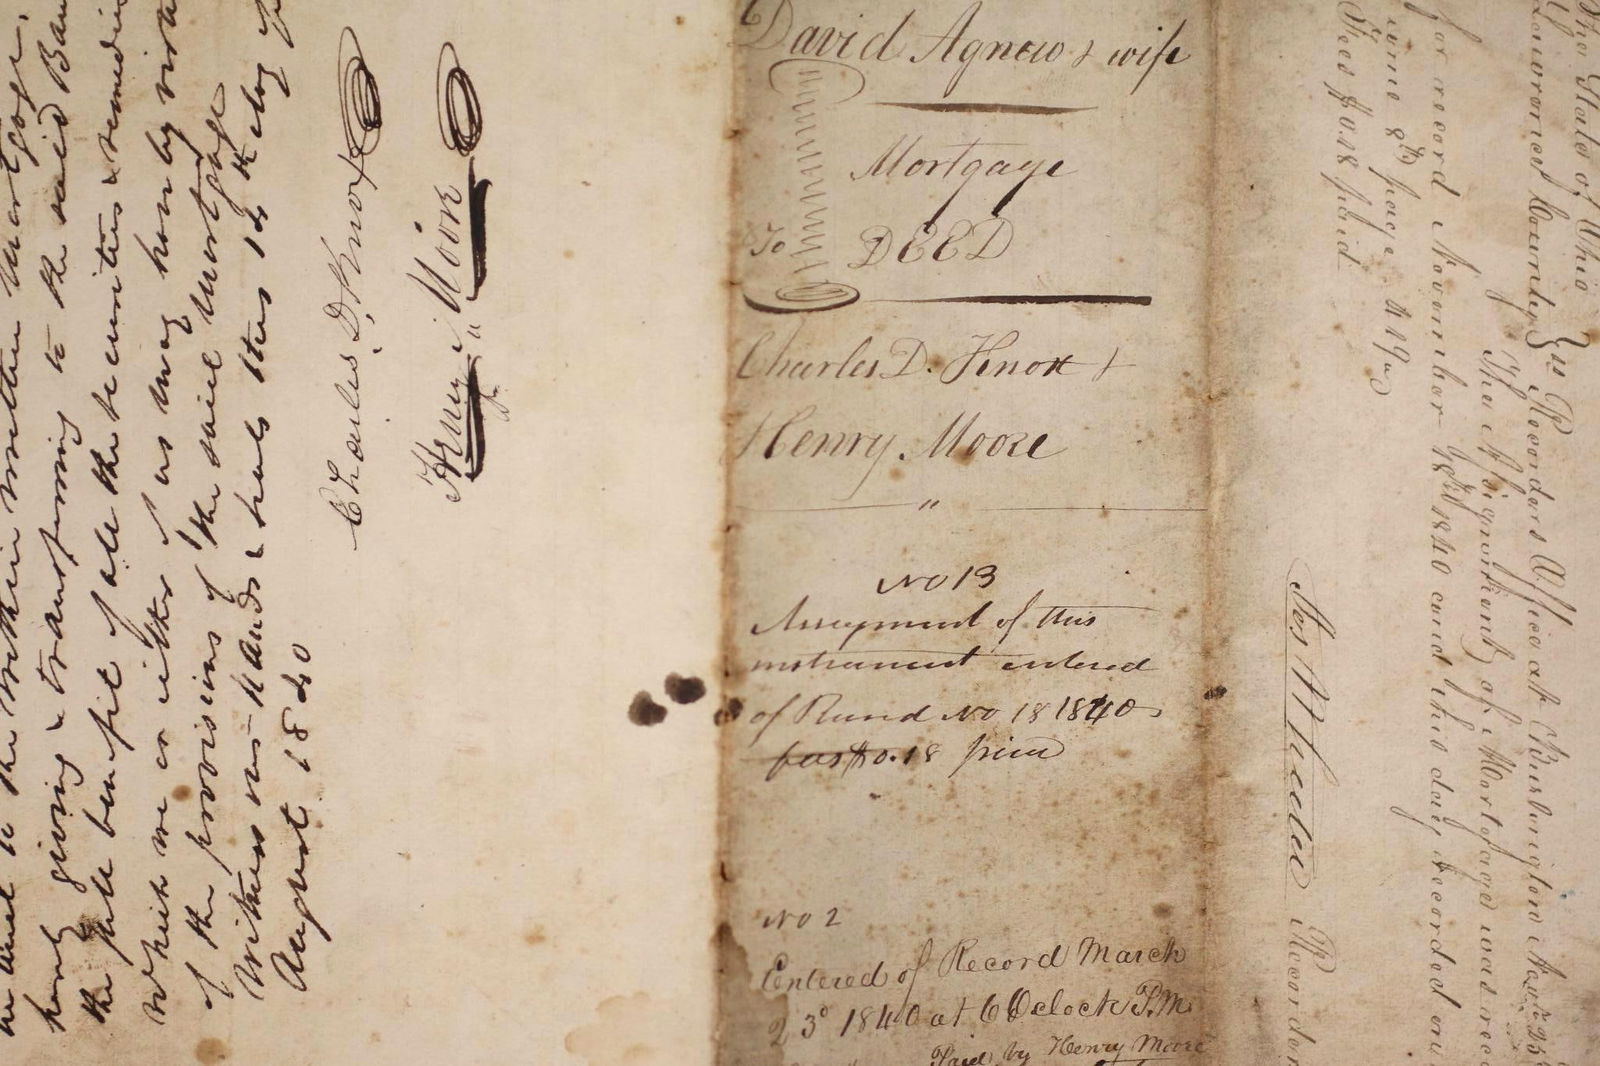 in the within written Mortgage,
hereby giving & transferring to the said Ban
the full benefit of all the securities & remedies
which we or either of us may have by virtue
of the provisions of the said Mortgage
Witness our hands & seals this day of
August 1840
Charles D. Knox
Henry Moore
David Agnew & wife
To
Mortgage
DEED
Charles D. Knox &
Henry Moore
"
No 13
Assignment of this
instrument entered
of Record No 18 1840
fees $0.18 paid
No 2
Entered of Record March
23d 1840 at 6 Oclock P.M.
Paid by Henry Moore
The State of Ohio
Lawrence County } ss Recorders Office at Burlington Nov 25
The Assignment of Mortgage was rec
for record November 18th 1840 and this day recorded in
page 419
Fees $0.18 paid
Recorder